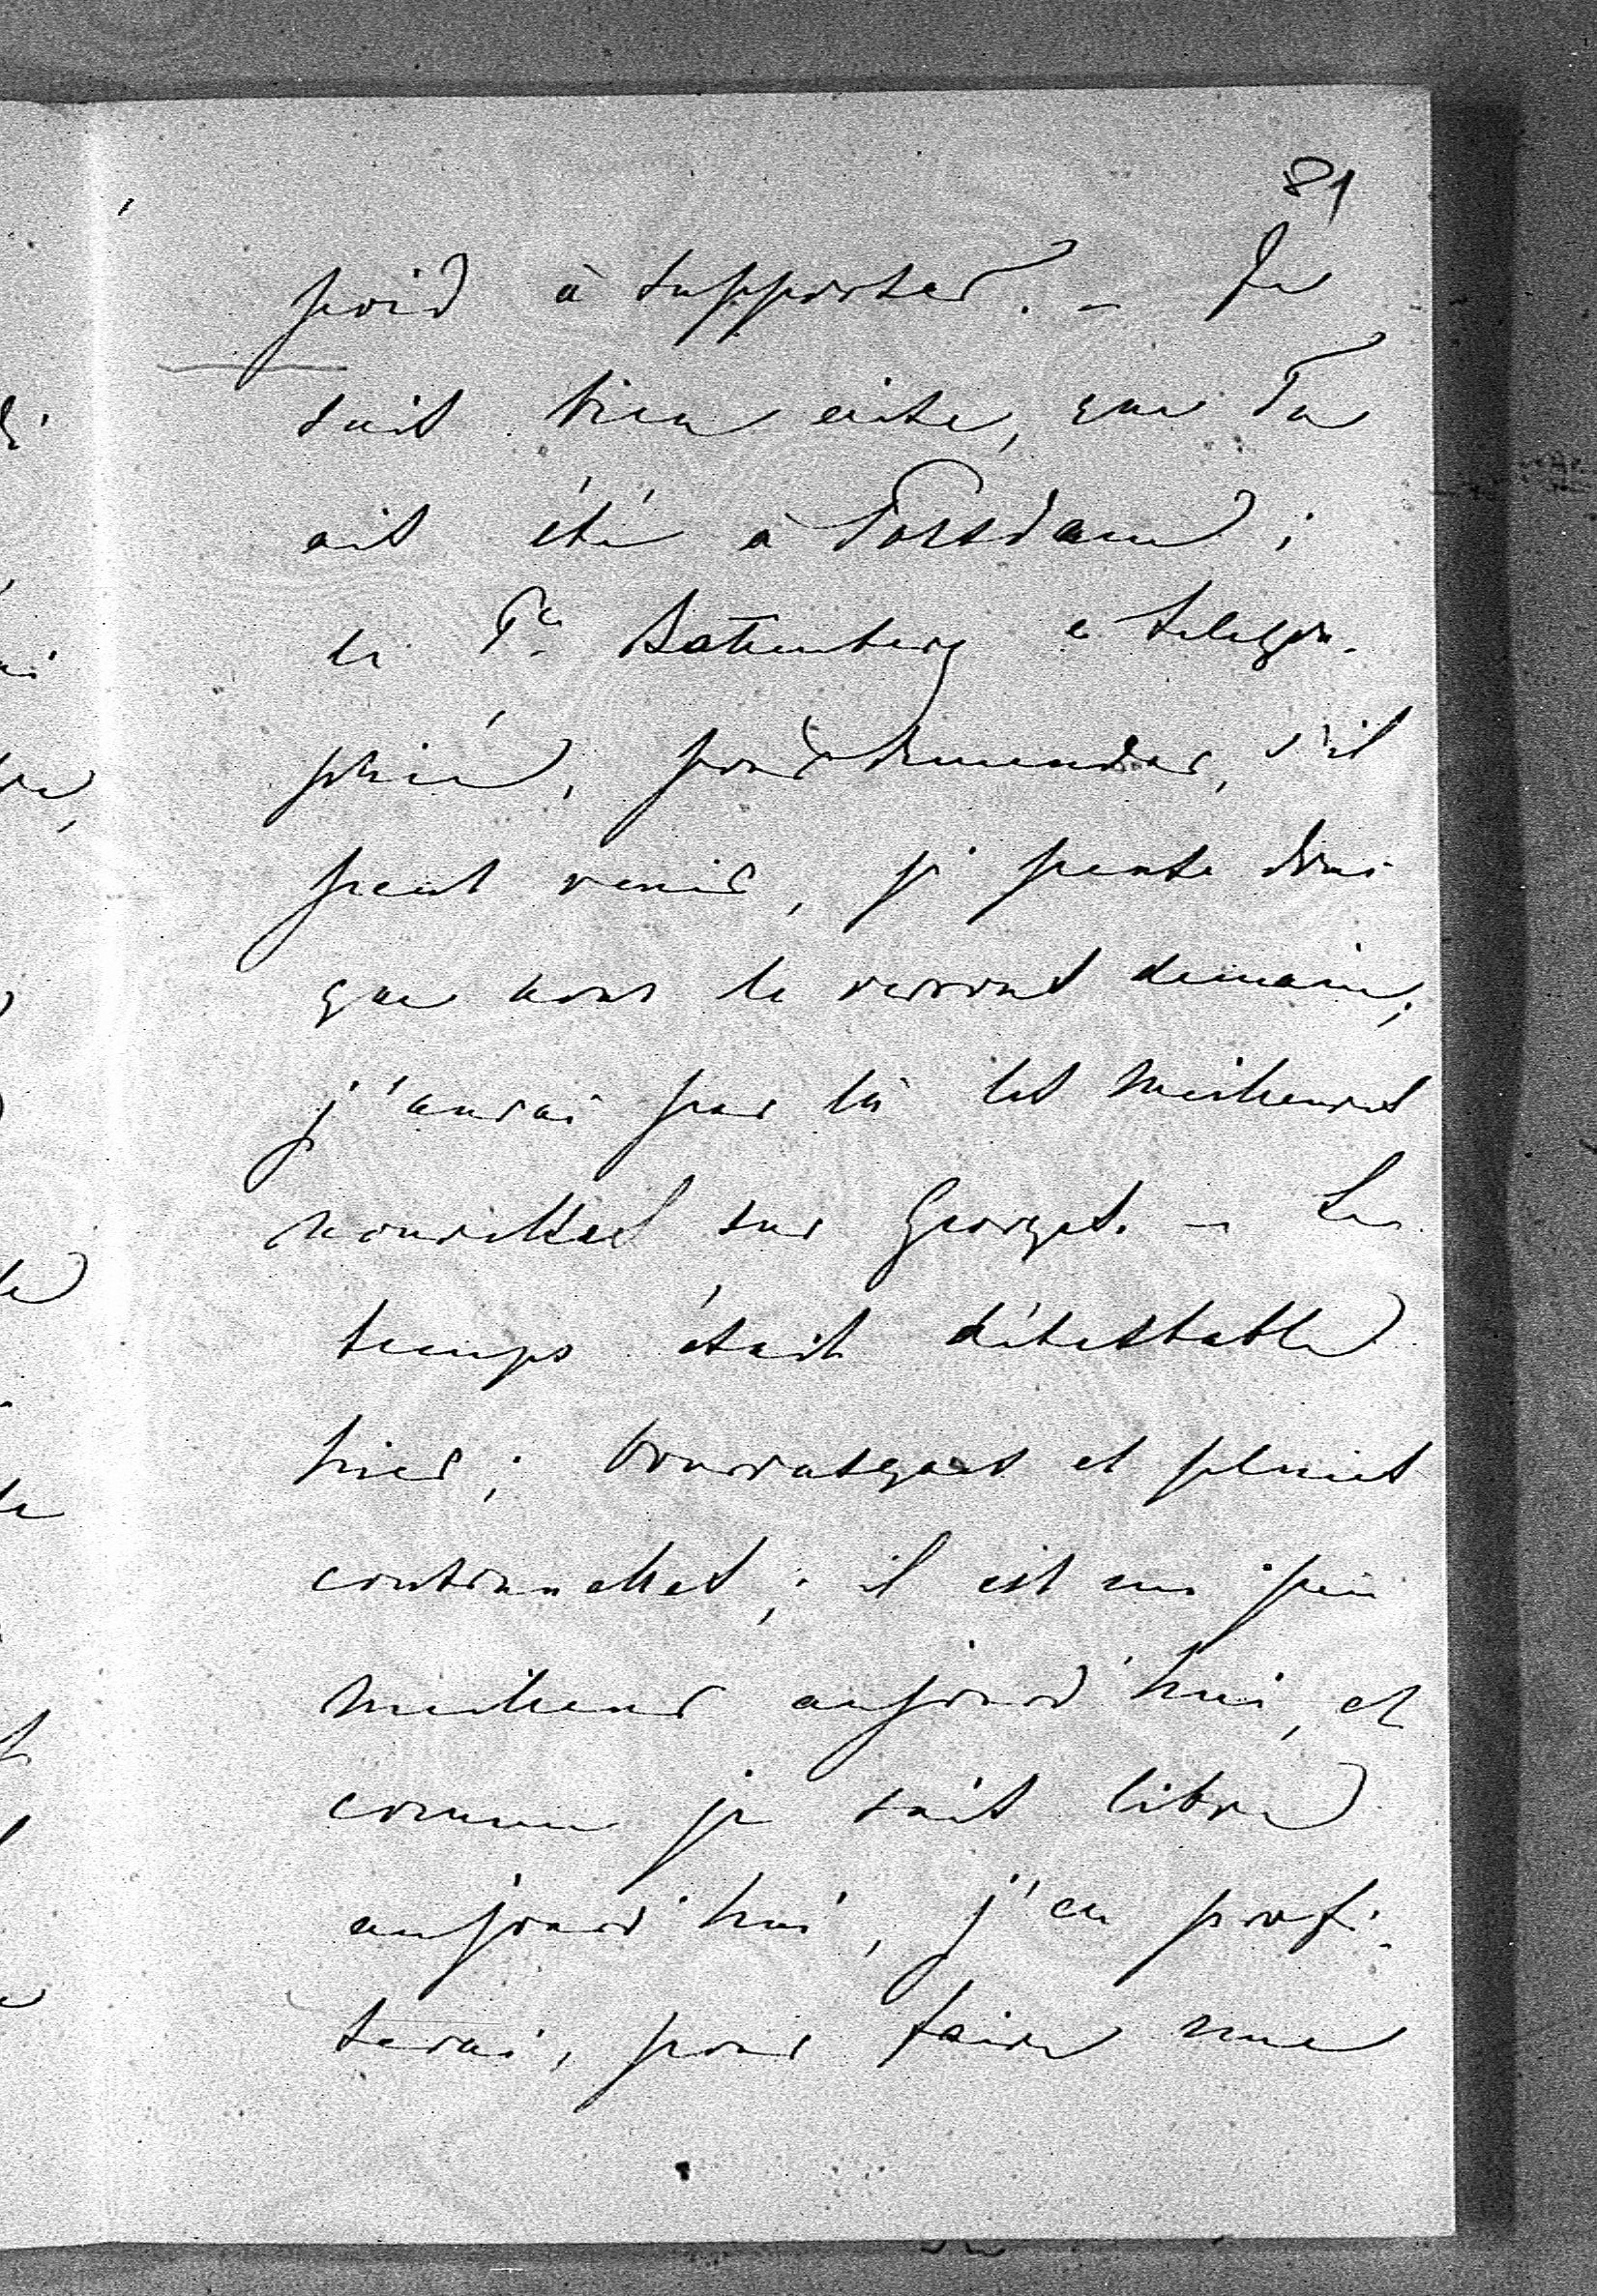 81
poid à supporter. - Je
suis bien aise, que Tu
ais été à Potsdam;
le Pce Battenberg a telegra-
phié, pour demander, s'il
peut venir, je pense donc
que nous le verrons demain;
j'aurai par là les meilleures
nouvelles sur Georges. - Le
temps était détestable
hier; bourrasques et pluies
continuelles; il est un peu
meilleur aujourd'hui, et
comme je suis libre
aujourd'hui, j'en profi-
terai, pour faire une